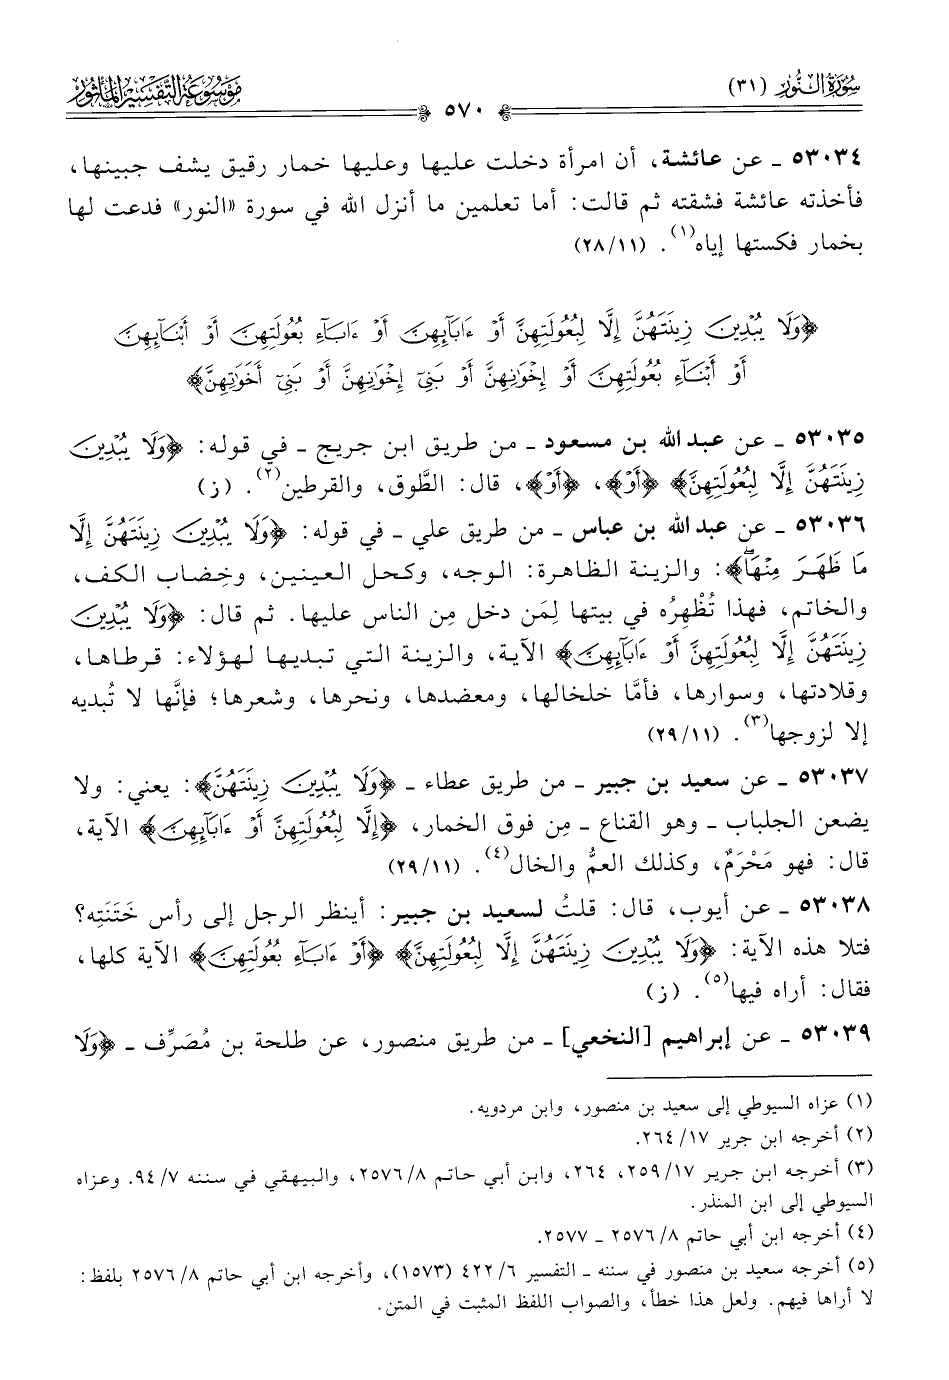 سُورَةُ النُّور (٣١)
٥٧٠
مَوْسُوعَة التَّفْسِير المَأْثُور
٥٣٠٣٤ ـ عن عائشة، أن امرأة دخلت عليها وعليها خمار رقيق يشف جبينها،
فأخذته عائشة فشقته ثم قالت: أما تعلمين ما أنزل الله في سورة «النور» فدعت لها
بخمار فكستها إياه(١). (٢٨/١١)
﴿وَلَا يُبْدِينَ زِينَتَهُنَّ إِلَّا لِبُعُولَتِهِنَّ أَوْ ءَابَآئِهِنَ أَوْ ءَابَآءِ بُعُولَتِهِنَ أَوْ أَبْنَآئِهِنَ
أَوْ أَبْنَآءِ بُعُولَتِهِنَ أَوْ إِخْوَٰنِهِنَّ أَوْ بَنِىٓ إِخْوَٰنِهِنَّ أَوْ بَنِىٓ أَخَوَٰتِهِنَّ﴾
٥٣٠٣٥ ـ عن عبد الله بن مسعود ـ من طريق ابن جريج ـ في قوله: ﴿وَلَا يُبْدِينَ
زِينَتَهُنَّ إِلَّا لِبُعُولَتِهِنَّ﴾ ﴿أَوْ﴾، ﴿أَوْ﴾، قال: الطَّوق، والقرطين(٢). (ز)
٥٣٠٣٦ ـ عن عبد الله بن عباس ـ من طريق علي ـ في قوله: ﴿وَلَا يُبْدِينَ زِينَتَهُنَّ إِلَّا
مَا ظَهَرَ مِنْهَا﴾: والزينة الظاهرة: الوجه، وكحل العينين، وخِضاب الكف،
والخاتم، فهذا تُظْهِرُه في بيتها لِمَن دخل مِن الناس عليها. ثم قال: ﴿وَلَا يُبْدِينَ
زِينَتَهُنَّ إِلَّا لِبُعُولَتِهِنَّ أَوْ ءَابَآئِهِنَ﴾ الآية، والزينة التي تبديها لهؤلاء: قرطاها،
وقلادتها، وسوارها، فأمَّا خلخالها، ومعضدها، ونحرها، وشعرها؛ فإنَّها لا تُبديه
إلا لزوجها(٣). (٢٩/١١)
٥٣٠٣٧ ـ عن سعيد بن جبير ـ من طريق عطاء ـ ﴿وَلَا يُبْدِينَ زِينَتَهُنَّ﴾: يعني: ولا
يضعن الجلباب ـ وهو القناع ـ مِن فوق الخمار، ﴿إِلَّا لِبُعُولَتِهِنَّ أَوْ ءَابَآئِهِنَ﴾ الآية،
قال: فهو مَحْرَمٌ، وكذلك العمُّ والخال(٤). (٢٩/١١)
٥٣٠٣٨ ـ عن أيوب، قال: قلتُ لسعيد بن جبير: أينظر الرجل إلى رأس خَتَنَتِه؟
فتلا هذه الآية: ﴿وَلَا يُبْدِينَ زِينَتَهُنَّ إِلَّا لِبُعُولَتِهِنَّ﴾ ﴿أَوْ ءَابَآءِ بُعُولَتِهِنَ﴾ الآية كلها،
فقال: أراه فيها(٥). (ز)
٥٣٠٣٩ ـ عن إبراهيم [النخعي] ـ من طريق منصور، عن طلحة بن مُصَرِّف ـ ﴿وَلَا
(١) عزاه السيوطي إلى سعيد بن منصور، وابن مردويه.
(٢) أخرجه ابن جرير ١٧/ ٢٦٤.
(٣) أخرجه ابن جرير ١٧/ ٢٥٩، ٢٦٤، وابن أبي حاتم ٨/ ٢٥٧٦، والبيهقي في سننه ٧/ ٩٤. وعزاه
السيوطي إلى ابن المنذر.
(٤) أخرجه ابن أبي حاتم ٨/ ٢٥٧٦ ـ ٢٥٧٧.
(٥) أخرجه سعيد بن منصور في سننه ـ التفسير ٦/ ٤٢٢ (١٥٧٣)، وأخرجه ابن أبي حاتم ٨/ ٢٥٧٦ بلفظ:
لا أراها فيهم. ولعل هذا خطأ، والصواب اللفظ المثبت في المتن.